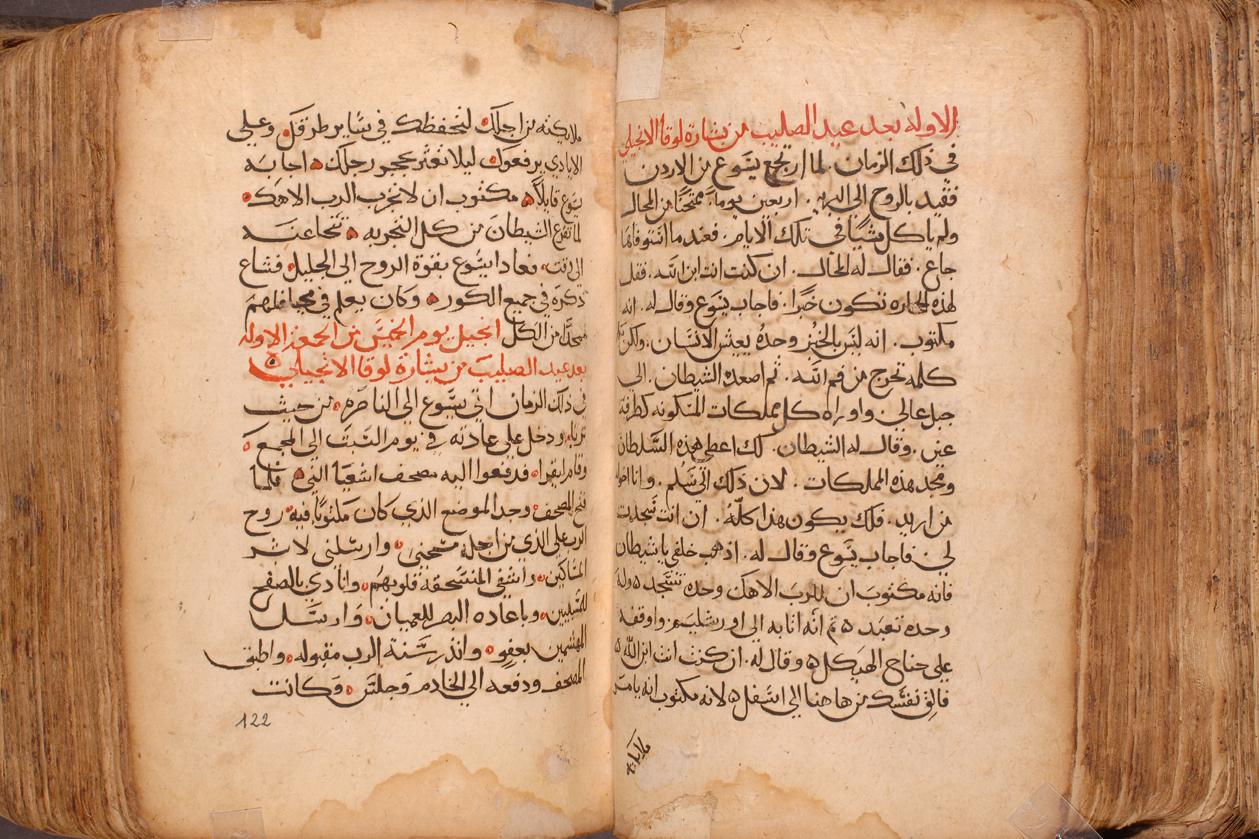 الاوله بعد عيد الصليب من بشارة لوقا الانجيلي
في ذلك الزمان. لما ارتجع يسوع من الاردن
فقيد بالروح الى البريه. اربعين يوماً. ممتحنًا من المحال
ولم ياكل شيًا في تلك الايام. فعند ما استوفاها
جاع. فقال له المحال. ان كنت انت ابن الله. فقل
لهذه الحجاره تكون خبزًا. فاجاب يسوع وقال له. انه
مكتوب. انه ليس بالخبز وحدهُ يعيش الانسان. ولكن بكل
كلمه تخرج من فم الله. ثم اصعده الشيطان. الى
جبل عالى واوراه كل مملكات المتكونه كطرفة
عين. وقال له الشيطان. لك اعطي هذه السلطان
ومجد هذه المملكات. لان ذلك اليّ سُلم. وانا
من اريد. فلك يكون هذا كلّه. ان انت سجدت
لي. فاجاب يسوع وقال له. اذهب خلفي يا شيطان
فانه مكتوب ان للرب الاهك وحده تسجد ه وله
وحده تعبد ه ثم انه اتا به الى اورشليم. واوقفه
على جناح الهيكل ه وقال له. ان كنت انت ابن الله ه
فالقِ نفسك من هاهنا الى اسفل ه لانه مكتوب انه يامر
ملايكته
ملايكته من اجلك لتحفظك في سَاير طرقك وعلى
الايادي يرفعوك ليلا تعثر بحجر رجلك اجابه
يسوع قايلاً مكتوب ان لا تجرب الرب الاهك
لما تفرغ الشيطان من كل التجربه تنحا عنه
الى وقت. فعاد ايسُوع بقوة الروح الى الجليل فشاع
ذكره في جميع الكور وكان يعلم في مجامعهم
ممجدًا من الكل انجيل يوم الخميس من الجمعه الاوله
بعد عيد الصليب من بشارة لوقا الانجيلي
في ذلك الزمان اتى يسُوع الى الناصره من حيث
تربا ودخل على عادته في يوم السبت الى المجمع
وقام ليقرا فدفعوا اليه مصحف اشعيا النبي فلما
فتح المصحف وجد الموضع الذي كان مكتوبًا فيه روح
الرب على الذي من اجله مسحني وارسلني لابشر
المساكين واشفي المنسحقه قلوبهُم وانادي بالصفح
للمسبيين وباعاده البصر للعميان وارسل
المهشمين بعفوٍ وانذر سنة الرب مقبوله واطبق
المصحف ودفعه الى الخادم وجلس وكانت
122